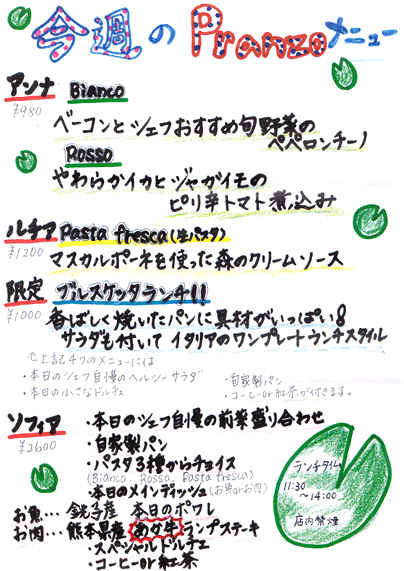 今週の Pranzo メニュー
アンナ Bianco
¥980
ベーコンとシェフおすすめ旬野菜の
ペペロンチーノ
Rosso
やわらかイカとジャガイモの
ピリ辛トマト煮込み
ルチア Pasta fresca(生パスタ)
¥1200
マスカルポーネを使った森のクリームソース
限定 ブルスケッタランチ!!
¥1000
香ばしく焼いたパンに具材がいっぱい!
サラダも付いてイタリアのワンプレートランチスタイル
上記4つのメニューには
・本日のシェフ自慢のヘルシーサラダ
・自家製パン
・本日の小さなドルチェ
・コーヒーor紅茶が付きます。
ソフィア
¥2600
・本日のシェフ自慢の前菜盛り合わせ
・自家製パン
・パスタ3種からチョイス
(Bianco, Rosso, Pasta fresca)
・本日のメインディッシュ(お魚orお肉)
お魚… 銚子産 本日のポワレ
お肉… 熊本県産 あか牛 ランプステーキ
・スペシャルドルチェ
・コーヒーor紅茶
ランチタイム
11:30
~14:00
店内禁煙